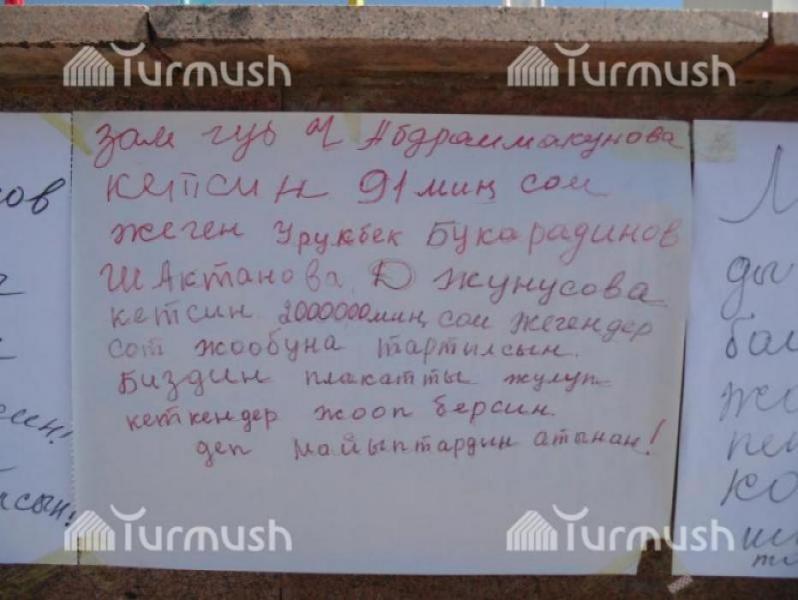 Turmush Turmush
зам губ Ч Абдраимакунова
кетсин 91 миң сом
жеген Урукбек Букарадинов
Ш Актанова, Д Жунусова
кетсин 2000000миң сом жегендер
сот жообуна тартылсын.
Биздин плакатты жулуп
кеткендер жооп берсин.
деп майыптардин атынан!
Turmush Turmush